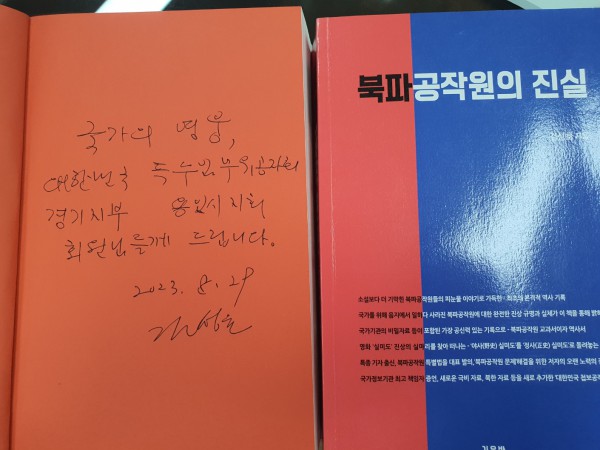 국가의 영웅,
대한민국 특수임무유공자회
경기지부 용인시지회
회원님들께 드립니다.
2023. 8. 29
북파공작원의 진실
소설보다 더 기막힌 북파공작원들의 피눈물 이야기로 가득한 - 최초의 본격적 역사 기록
국가를 위해 음지에서 일하다 사라진 북파공작원에 대한 완전한 진상 규명과 실체가 이 책을 통해 밝혀
국가기관의 비밀자료 등이 포함된 가장 공신력 있는 기록으로 - 북파공작원 교과서이자 역사서
영화 '실미도' 진상의 실마리를 찾아 떠나는 - '야사(野史) 실미도'를 '정사(正史) 실미도'로 돌려놓는
특종 기자 출신, 북파공작원 특별법을 대표 발의, '북파공작원 문제'해결을 위한 저자의 오랜 노력의
국가정보기관 최고 책임자 증언, 새로운 극비 자료, 북한 자료 등을 새로 추가한 '대한민국 첩보공작